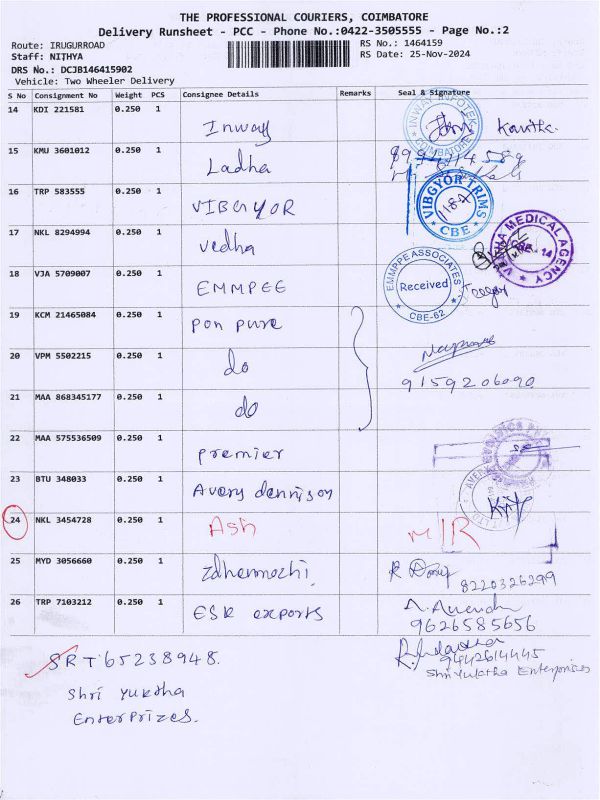 THE PROFESSIONAL COURIERS, COIMBATORE
Delivery Runsheet - PCC - Phone No.:0422-3505555 - Page No.:2
Route: IRUGURROAD
RS No.: 1464159
Staff: NITHYA
RS Date: 25-Nov-2024
DRS No.: DCJB146415902
Vehicle: Two Wheeler Delivery
S No Consignment No Weight PCS Consignee Details Remarks Seal & Signature
14 KDI 221581 0.250 1 Inway Kavitha
INWAY INFOTEK COIMBATORE
15 KMU 3601012 0.250 1 Ladha
16 TRP 583555 0.250 1 VIBGYOR
VIBGYOR TRIMS CBE
17 NKL 8294994 0.250 1 vedha
MEDICAL AGENCY
18 VJA 5709007 0.250 1 EMMPEE
EMMPPE ASSOCIATES Received CBE-62
19 KCM 21465084 0.250 1 pon pure
20 VPM 5502215 0.250 1 do
9159206090
21 MAA 868345177 0.250 1 do
22 MAA 575536509 0.250 1 premier
23 BTU 348033 0.250 1 Avery dennison
24 NKL 3454728 0.250 1 Ash M/R
25 MYD 3056660 0.250 1
8220326299
26 TRP 7103212 0.250 1 ESR exports
9626585656
SRT 65238948.
9442614445
Shri Yuktha Enterprises
Shri Yuktha
Enterprizes.